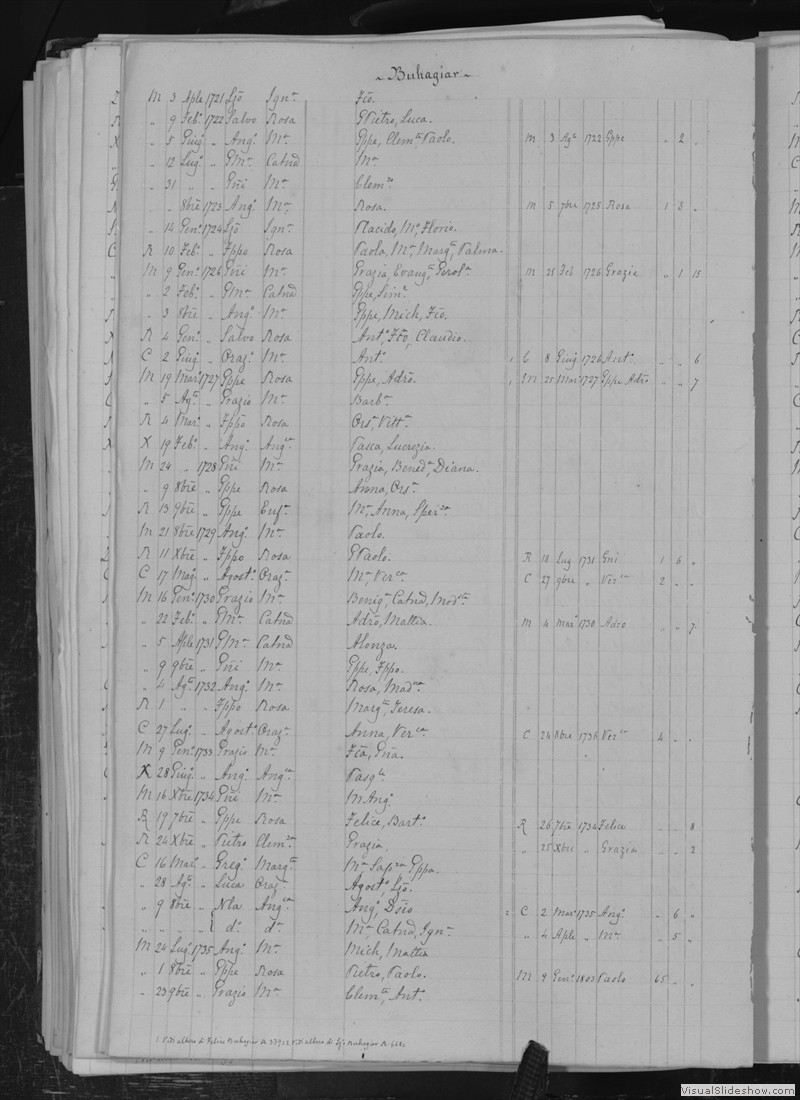 ~ Buhagiar ~
M 3 Aple 1721 Ljō Ignª Fcō.
" 9 Febº 1722 Salvo Rosa GPietro, Luca.
" 5 Giugº " Angº Mª Gppe, Clemte, Paolo. M 3 Agto 1722 Gppe " 2 "
" 12 Lugº " GMª Catnā Mª
" 31 " " Gñi Mª Clemza
" " 8bre 1723 Angº Mª Rosa. M 5 7bre 1725 Rosa 1 8 "
" 14 Genº 1724 Ljō Ignª Placido, Mª, Florio.
R 10 Febº " Fppo Rosa Paola, Mª, Margta, Palma.
M 9 Genº 1726 Gñi Mª Grazia, Evangta, Gerolª M 25 Feb 1726 Grazia " 1 15
" 2 Febº " GMª Catnā Gppe,
" 3 8bre " Angº Mª Gppe, Mich, Fcō.
R 4 Genº " Salvo Rosa Antº, Fcō, Claudio.
C 2 Giugº " Oraz. Mª Antº 1 C 8 Giugº 1726 Antº " " 6
M 19 Marº 1727 Gppe Rosa Gppe, Adrō. 1 M 25 Marº 1727 Gppe Adrō " " 7
" 5 Agto " Grazio Mª Barbª
R 4 Marº " Fppo Rosa Orsª, Vittª
X 19 Febº " Angº Angca Passa, Lucrezia.
M 24 " 1728 Gñi Mª Grazia, Benedta, Diana.
" 9 8bre " Gppe Rosa Anna, Orsª
R 13 9bre " Gppe Eufª Mª, Anna, Sperza
M 21 8bre 1729 Angº Mª Paolo.
R 11 Xbre " Fppo Rosa GPaolo. R 18 Lug 1731 Gni 1 6 "
C 17 Magº " Agostº Orazª Mª, Verca C 27 9bre " Verca 2 " "
M 16 Genº 1730 Grazio Mª Benigª, Catnā, Modta
" 22 Febº " GMª Catnā Adrō, Mattia. M 4 Marº 1730 Adro " " 7
" 5 Aple 1731 GMª Catnā Alonza.
" 9 9bre " Gñi Mª Gppe, Fppo.
" 4 Agto 1732 Angº Mª Rosa, Madna
R 1 " " Fppo Rosa Margta, Teresa.
C 27 Lugº " Agostº Orazª Anna, Verca C 24 8bre 1736 Verca 4 " "
M 9 Genº 1733 Grazio Mª Fcā, Gña.
X 28 Giugº " Angº Angca Pasqle
M 16 Xbre 1734 Gñi Mª MAngº
R 19 7bre " Gppe Rosa Felice, Bartº R 26 7bre 1734 Felice " " 8
R 24 Xbre " Pietro Clemza Grazia. " 25 Xbre " Grazia " " 2
C 16 Marº " Gregº Margta Mª Gppa.
" 28 Agº " Luca Orazª Agostº, Ljō.
" 9 8bre " Nla Angca Angº, Dsio 2 C 2 Marº 1735 Angº " 6 "
" " " " dº dº Mª, Catnā, Ignª " 4 Aple " Mª " 5 "
M 24 Lugº 1735 Angº Mª Mich, Mattia
" 1 8bre " Gppe Rosa Pietro, Paolo. M 9 Genº 1803 Paolo 65 " "
" 23 9bre " Grazio Mª Clemte, Antº
1 Vidi albero di Felice Buhagiar 2 Vidi albero di Ljō Buhagiar
VisualSlideshow.com